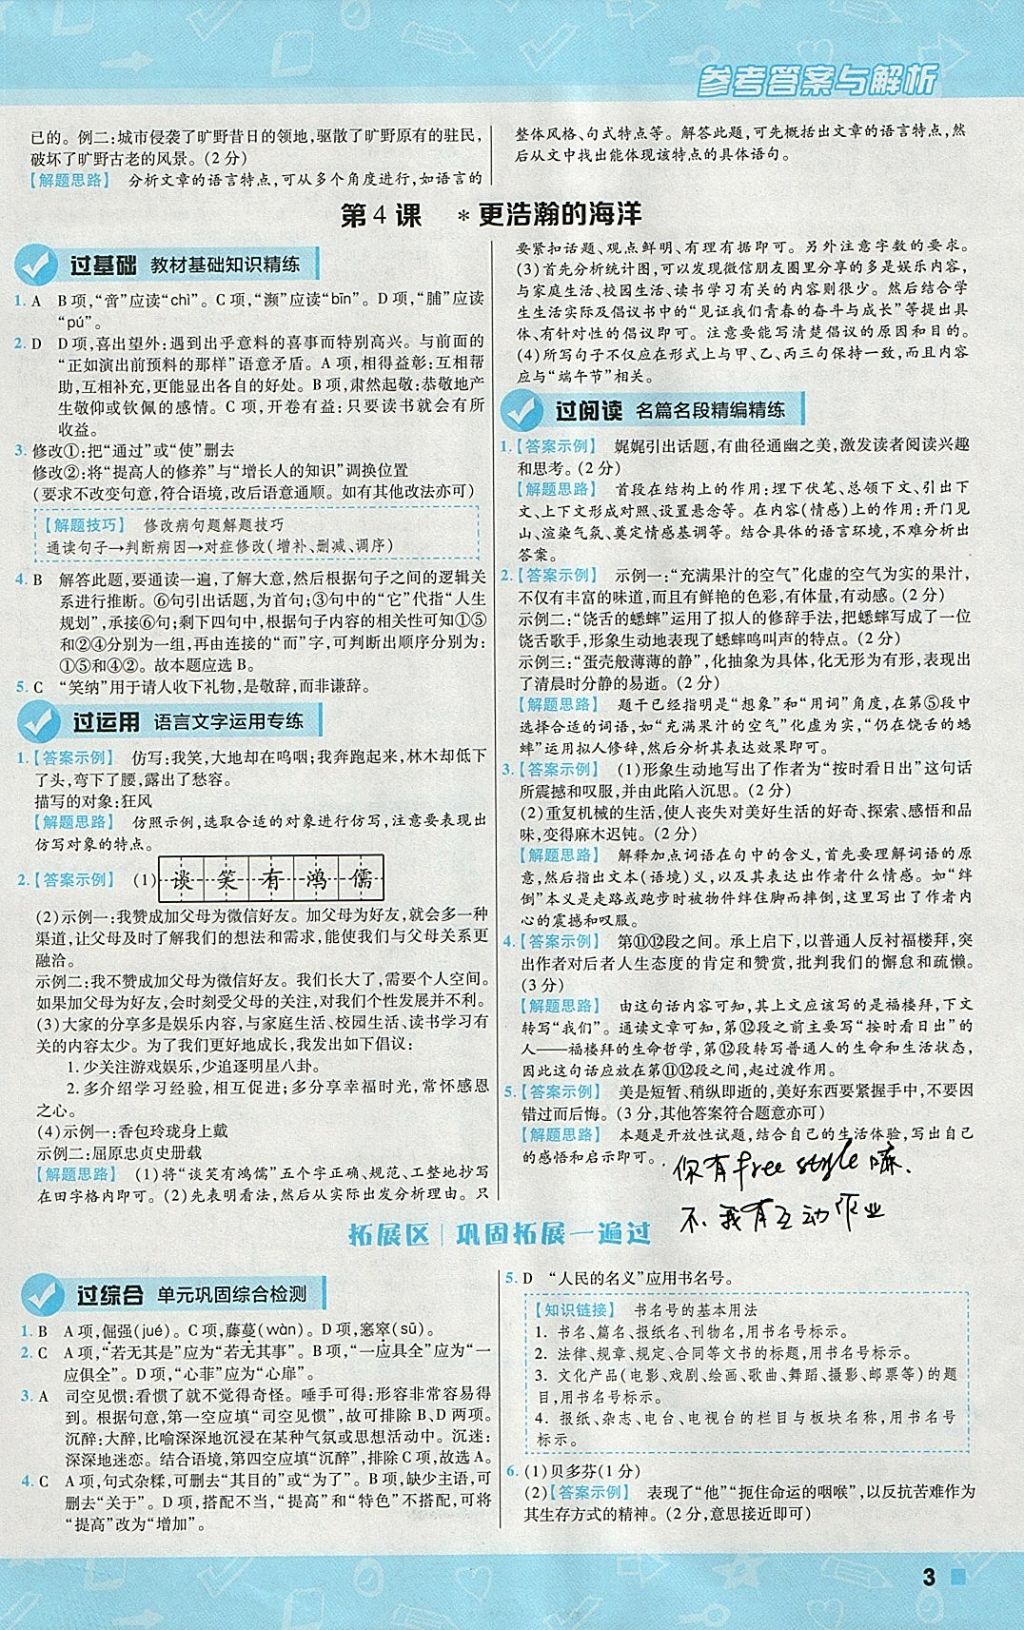 参考答案与解析
已的。例二:城市侵袭了旷野昔日的领地,驱散了旷野原有的驻民,
破坏了旷野古老的风景。(2 分)
【解题思路】 分析文章的语言特点,可从多个角度进行,如语言的
整体风格、句式特点等。解答此题,可先概括出文章的语言特点,然
后从文中找出能体现该特点的具体语句。
第 4 课 *更浩瀚的海洋
过基础 教材基础知识精练
1. A B 项,“啻”应读“chì”。C 项,“濒”应读“bīn”。D 项,“脯”应读
“pú”。
2. D D 项,喜出望外:遇到出乎意料的喜事而特别高兴。与前面的
“正如演出前预料的那样”语意矛盾。A 项,相得益彰:互相帮
助,互相补充,更能显出各自的好处。B 项,肃然起敬:恭敬地产
生敬仰或钦佩的感情。C 项,开卷有益:只要读书就会有所
收益。
3. 修改①:把“通过”或“使”删去
修改②:将“提高人的修养”与“增长人的知识”调换位置
(要求不改变句意,符合语境,改后语意通顺。如有其他改法亦可)
【解题技巧】 修改病句题解题技巧
通读句子→判断病因→对症修改(增补、删减、调序)
4. B 解答此题,要通读一遍,了解大意,然后根据句子之间的逻辑关
系进行推断。⑥句引出话题,为首句;③句中的“它”代指“人生
规划”,承接⑥句;剩下四句中,根据句子内容的相关性可知①⑤
和②④分别为一组,再由连接的“而”字,可判断出顺序分别为:
①⑤和④②。故本题应选 B。
5. C “笑纳”用于请人收下礼物,是敬辞,而非谦辞。
过运用 语言文字运用专练
1.【答案示例】 仿写:我笑,大地却在呜咽;我奔跑起来,林木却低下
了头,弯下了腰,露出了愁容。
描写的对象:狂风
【解题思路】 仿照示例,选取合适的对象进行仿写,注意要表现出
仿写对象的特点。
2.【答案示例】 (1)谈笑有鸿儒
(2)示例一:我赞成加父母为微信好友。加父母为好友,就会多一种
渠道,让父母及时了解我们的想法和需求,能使我们与父母关系更
融洽。
示例二:我不赞成加父母为微信好友。我们长大了,需要个人空间。
如果加父母为好友,会时刻受父母的关注,对我们个性发展并不利。
(3)大家的分享多是娱乐内容,与家庭生活、校园生活、读书学习有
关的内容太少。为了我们更好地成长,我发出如下倡议:
1. 少关注游戏娱乐,少追逐明星八卦。
2. 多介绍学习经验,相互促进;多分享幸福时光,常怀感恩
之心。
(4)示例一:香包玲珑身上戴
示例二:屈原忠贞史册载
【解题思路】 (1)将“谈笑有鸿儒”五个字正确、规范、工整地抄写
在田字格内即可。(2)先表明看法,然后从实际出发分析理由。只
要紧扣话题、观点鲜明、有理有据即可。另外注意字数的要求。
(3)首先分析统计图,可以发现微信朋友圈里分享的多是娱乐内容,
与家庭生活、校园生活、读书学习有关的内容则很少。然后结合学
生生活实际及倡议书中的“见证我们青春的奋斗与成长”等提出具
体、有针对性的倡议即可。注意要能写清楚倡议的原因和目的。
(4)所写句子不仅应在形式上与甲、乙、丙三句保持一致,而且内容
应与“端午节”相关。
过阅读 名篇名段精编精练
1.【答案示例】 娓娓引出话题,有曲径通幽之美,激发读者阅读兴趣
和思考。(2 分)
【解题思路】 首段在结构上的作用:埋下伏笔、总领下文、引出下
文、上下文形成对照、设置悬念等。在内容(情感)上的作用:开门见
山、渲染气氛、奠定情感基调等。结合具体的语言环境,不难分析出
答案。
2.【答案示例】 示例一:“充满果汁的空气”化虚的空气为实的果汁,
不仅有丰富的味道,而且有鲜艳的色彩,有体量,有动感。(2 分)
示例二:“饶舌的蟋蟀”运用了拟人的修辞手法,把蟋蟀写成了一位
饶舌歌手,形象生动地表现了蟋蟀鸣叫声的特点。(2 分)
示例三:“蛋壳般薄薄的静”,化抽象为具体,化无形为有形,表现出
了清晨时分静的易逝。(2 分)
【解题思路】 题干已经明是“想象”和“用词”角度,在第⑤段中
选择合适的词语,如“充满果汁的空气”化虚为实,“仍在饶舌的蟋
蟀”运用拟人修辞,然后分析其表达效果即可。
3.【答案示例】 (1)形象生动地写出了作者为“按时看日出”这句话
所震撼和叹服,并由此陷入沉思。(2 分)
(2)重复机械的生活,使人丧失对美好生活的好奇、探索、感悟和品
味,变得麻木迟钝。(2 分)
【解题思路】 解释加点词语在句中的含义,首先要理解词语的原
意,然后指出文本(语境)义,以及其表达作者什么情感。如“绊
倒”本义是走路或跑步时被物件绊住脚而摔倒,这里写出了作者内
心的震撼和叹服。
4.【答案示例】 第⑪⑫段之间。承上启下,以普通人反衬福楼拜,突
出作者对后者人生态度的肯定和赞赏,批判我们的懈怠和疏懒。
(3 分)
【解题思路】 由这句话内容可知,其上文应该写的是福楼拜,下文
转写“我们”。通读文章可知,第⑫段之前主要写“按时看日出”的
人——福楼拜的生命哲学,第⑫段转写普通人的生命和生活状态,
因此这句话应放在第⑪⑫段之间,起过渡作用。
5.【答案示例】 美是短暂、稍纵即逝的,美好东西要紧握手中,不要因
错过而后悔。(3 分,其他答案符合题意亦可)
【解题思路】 本题是开放性试题,结合自己的生活体验,写出自己
的感悟和启示即可。
你有free style嘛.
不、我有互动作业
拓展区 巩固拓展一遍过
过综合 单元巩固综合检测
1. B A 项,倔强(jué)。C 项,藤蔓(wàn)。D 项,窸窣(sū)。
2. C A 项,“若无其是”应为“若无其事”。B 项,“一应具全”应为“一
应俱全”。D 项,“心菲”应为“心扉”。
3. A 司空见惯:看惯了就不觉得奇怪。唾手可得:形容非常容易得
到。根据句意,第一空应填“司空见惯”,故可排除 B、D 两项。
沉醉:大醉,比喻深深地沉浸在某种气氛或思想活动中。沉迷:
深深地迷恋。结合语境,第四空应填“沉醉”,排除 C 项,故选 A。
4. C A 项,句式杂糅,可删去“其目的”或“为了”。B 项,缺少主语,可
删去“关于”。D 项,搭配不当,“提高”和“特色”不搭配,可将
“提高”改为“增加”。
5. D “人民的名义”应用书名号。
【知识链接】 书名号的基本用法
1. 书名、篇名、报纸名、刊物名,用书名号标示。
2. 法律、规章、规定、合同等文书的标题,用书名号标示。
3. 文化产品(电影、戏剧、绘画、歌曲、舞蹈、摄影、邮票等)的题
目,用书名号标示。
4. 报纸、杂志、电台、电视台的栏目与板块名称,用书名号
标示。
6. (1)贝多芬(1 分)
(2)【答案示例】 表现了“他”“扼住命运的咽喉”,以反抗苦难作为
其生存方式的精神。(2 分,意思接近即可)
3